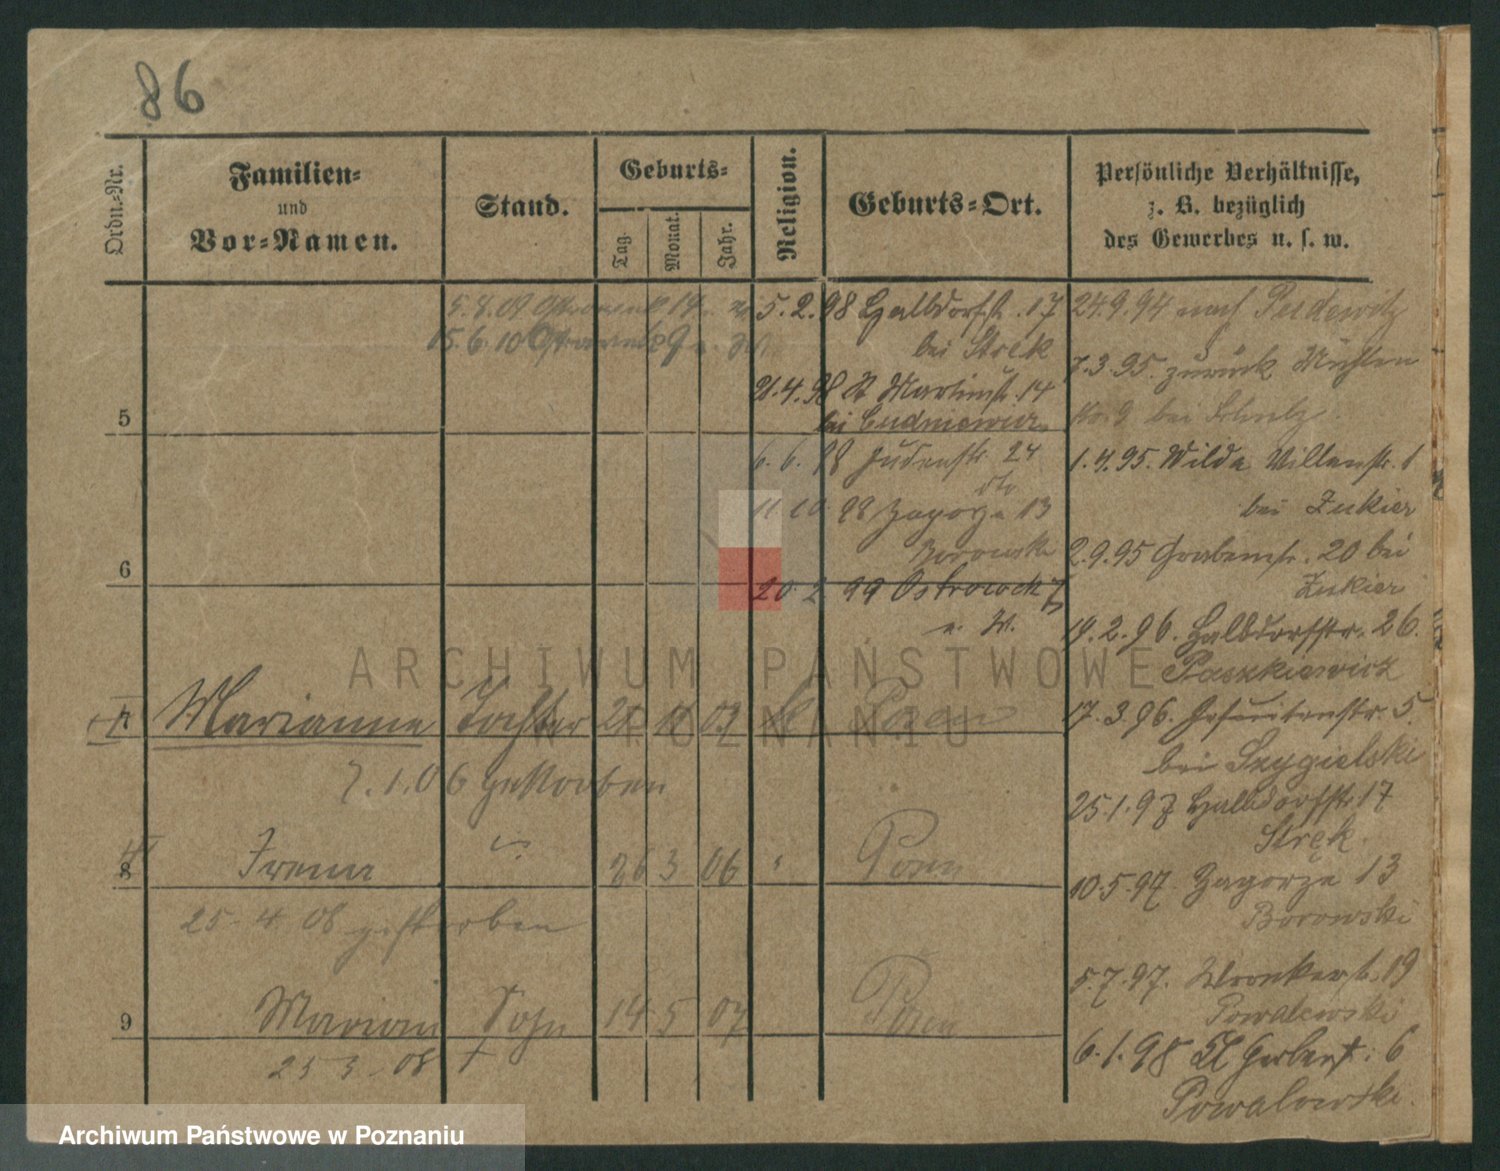 86
Ordn.-Nr.
Familien-
und
Vor-Namen.
Stand.
Geburts-
Tag
Monat.
Jahr.
Religion.
Geburts-Ort.
Persönliche Verhältnisse,
z. B. bezüglich
des Gewerbes u. s. w.
15.6.10
5.2.98 Halbdorfstr. 17
bei Stręk
21.4.98 St Martinstr. 14
bei Cudniewicz
6.6.98 Judenstr. 24
11.10 98 Zagorze 13
Borowski
20.2 99 Ostrowek 7
n. W.
24.9.94 nach Pudewitz
7.3.95. zurück Mühlen
No. 9 bei Schulz.
1.4.95. Wilda Villenstr. 1
bei Zukier
2.9.95 Grabenstr. 20 bei
Zukier
19.2.96. Halbdorfstr. 26.
Paszkiewicz
17.3.96. Jesuitenstr. 5.
bei Szygielski
25.1.97 Halbdorfstr 17
Stręk.
10.5.97. Zagorze 13
Borowski
5.7.97. Wronkerstr. 19
Powalowski
6.1.98 Kl Gerberstr. 6
Powalowski.
5
6
Marianne Tochter Posen
7.1.06 gestorben
8 Irena 26 3 06 " Posen
25.4.08 gestorben
9 Marian Sohn 14 5 07 Posen
25 3. 08 +
ARCHIWUM PAŃSTWOWE
W POZNANIU
Archiwum Państwowe w Poznaniu